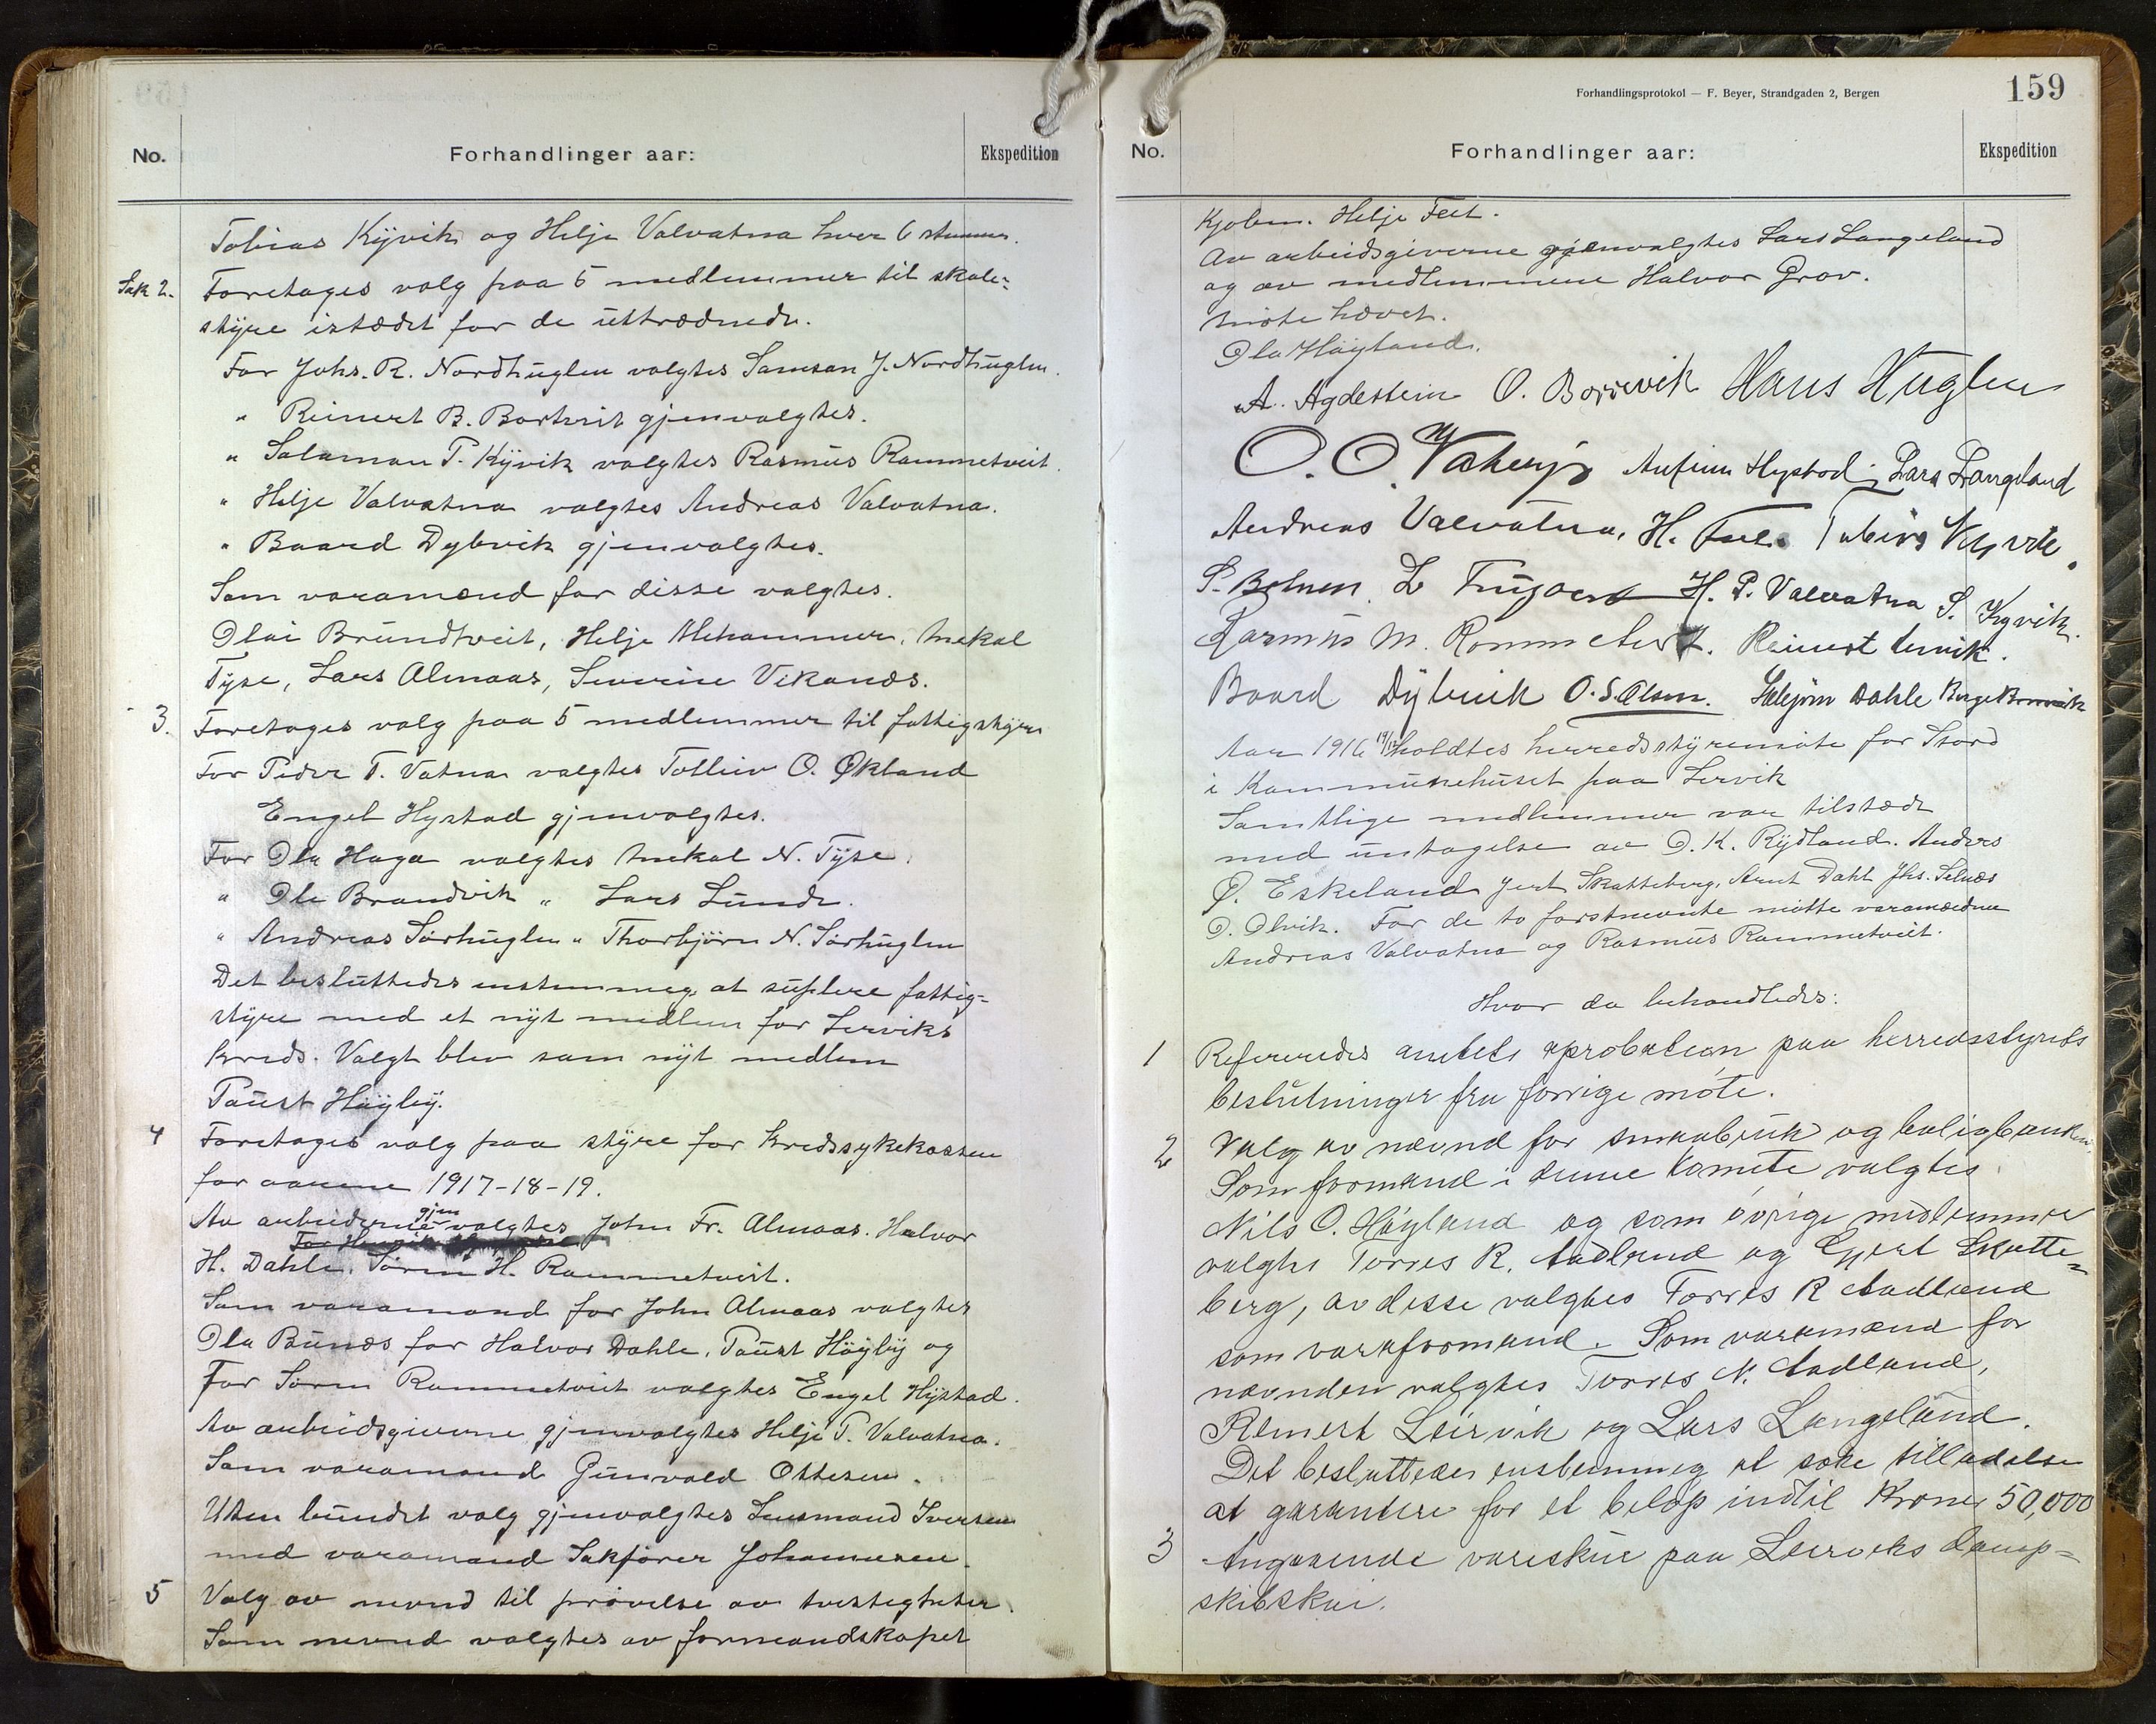 No.
Forhandlinger aar:
Ekspedition
Tobias Kÿvik og Helje Valvatna hver 6 stemmer.
Sak 2. Foretages valg paa 5 medlemmer til skole-
styre istædet for de uttrædende.
For Johs. R. Nordhuglen valgtes Samson J. Nordhuglen.
" Reinert B. Bortveit gjenvalgtes.
" Salamon T. Kÿvik valgtes Rasmus Rommetveit.
" Helje Valvatna valgtes Andreas Valvatna.
" Baard Dybvik gjenvalgtes.
Som varamænd for disse valgtes.
Olai Brundtveit, Helje Mehammer, Mekal
Tyse, Lars Almaas, Severin Vikanes.
3. Foretages valg paa 5 medlemmer til fattigstyre
For Peder T. Vatna valgtes Tolleiv O. Økland
Engel Hystad gjenvalgtes.
For Ola Haga valgtes Mekal N. Tÿse.
" Ole Brandvik " Lars Lunde.
" Andreas Sørhuglen " Thorbjørn N. Sørhuglen
Det besluttedes enstemmeg at suplere fattig-
styre med et nÿt medlem for Lerviks
kreds. Valgt blev som nÿt medlem
Paust Høÿbÿ.
4 Foretages valg paa styre for kredssykekassen
for aarene 1917-18-19.
Av arbeiderne gjenvalgtes John Fr. Almaas. Halvor
H. Dahle. Søren H. Rommetveit.
Som varamand for John Almaas valgtes
Ola Bunæs for Halvor Dahle. Paust Høÿbÿ og
For Søren Rommetveit valgtes Engel Hÿstad.
Av arbeidsgiverne gjenvalgtes Helje P. Valvatna.
Som varamand Gunvald Ottesen.
Uten bundet valg gjenvalgtes Lensmand Iversen
med varamand Sakfører Johannesen.
5 Valg av nevnd til prøvelse av tvistigheter.
Som nevnd valgtes av formandskapet
Forhandlingsprotokol — F. Beyer, Strandgaden 2, Bergen
159
No.
Forhandlinger aar:
Ekspedition
Kjøbm. Helje Feet.
Av arbeidsgiverne gjenvalgtes Lars Langeland
og av medlemmene Halvor Grov.
Møte hævet.
Ola Høyland.
A. Agdestein O. Borrevik Hans Huglen
O. O. Anfinn Hystad Lars Langeland
Andreas Valvatna, H. Tobias Kyvik.
S. H. P. Valvatna S. Kyvik.
Rasmus M. Rommetveit. Reinert Lervik.
Baard Dÿbvik O. S. Olsen. Dahle Børge
Aar 1916 19/12 holdtes herredsstyremøte for Stord
i Kommunehuset paa Lervik
Samtlige medlemmer var tilstæde
med untagelse av O. K. Rÿdland. Anders
O. Eskeland Jert Skatteberg. Arnt Dahl Jhs. Selnæs
O. Olvik. For de to førstnevnte møtte varamændene
Andreas Valvatna og Rasmus Rommetveit.
Hvor da behandledes:
1 Refereredes amtets aprobation paa herredsstyrets
beslutninger fra forrige møte.
2 Valg av nævnd for smaabruk og boligbanken.
Som formand i denne komite valgtes
Nils O. Høyland og som øvrige medlemmer
valgtes Torres R. Aadland og Gjert Skatte-
berg, av disse valgtes Torres R Aadland
som varaformand. Som varamænd for
nævnden valgtes Torres N. Aadland,
Reinert Leirvik og Lars Langeland.
Det besluttedes enstemmig at søke tilladelse
at garantere for et beløp indtil Kroner 50,000
3 Angaaende vareskur paa Leirviks damp-
skibskai.